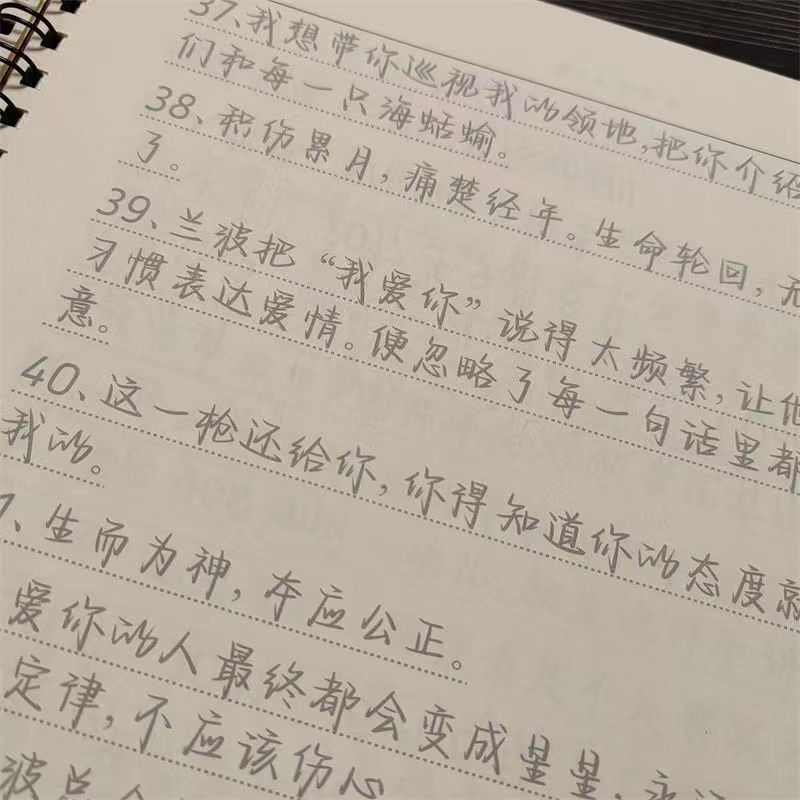 37、我想带你巡视我的领地,把你介绍
们和每一只海蛞蝓。
38、积伤累月,痛楚经年。生命轮回,无
了。
39、兰波把“我爱你”说得太频繁,让他
习惯表达爱情。便忽略了每一句话里都
意。
40、这一枪还给你,你得知道你的态度就
我的。
、生而为神,本应公正。
爱你的人最终都会变成星星,永远
定律,不应该伤心
波总会